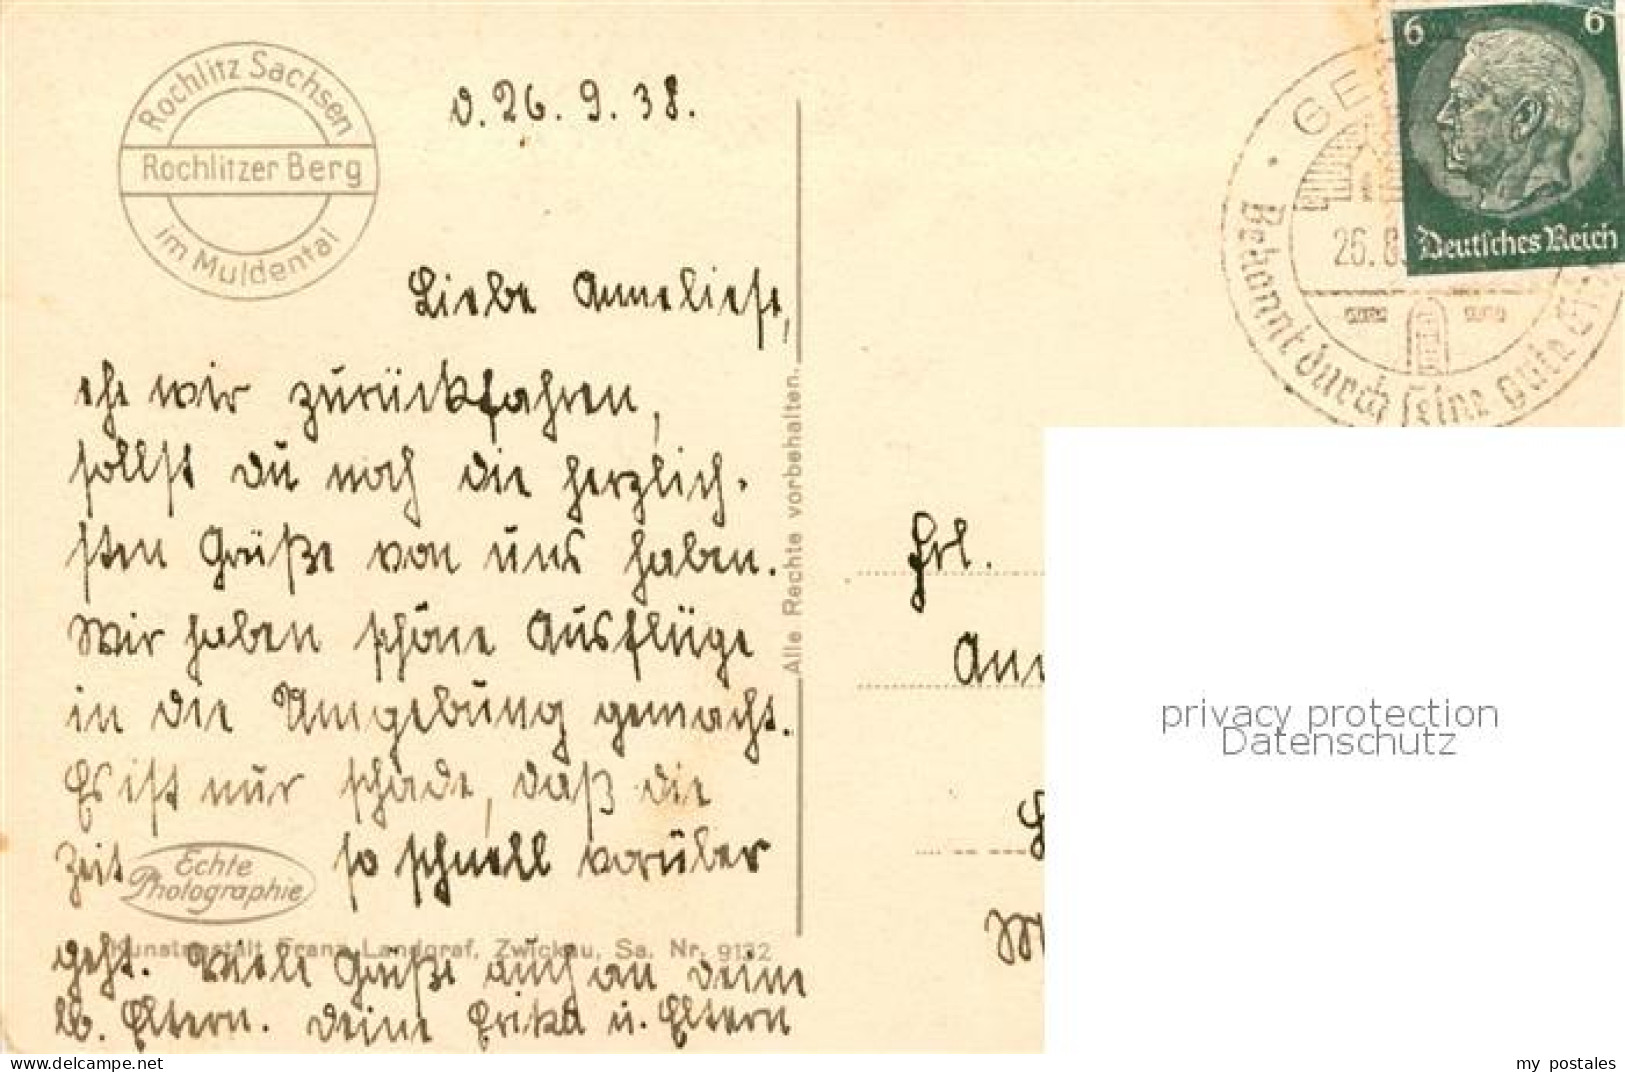 Rochlitz Sachsen
Rochlitzer Berg
im Muldental
d. 26. 9. 38.
Liebe Anneliese,
ehe wir zurückfahren,
sollst du noch die herzlich-
sten Grüße von uns haben.
Wir haben schöne Ausflüge
in die Umgebung gemacht.
Es ist nur schade, daß die
Zeit so schnell vorüber
geht. Viele Grüße auch an deine
lb. Eltern. Deine Erika u. Eltern
Echte
Photographie
Kunstanstalt Franz Landgraf, Zwickau, Sa. Nr. 9132
Alle Rechte vorbehalten.
6 6
Deutsches Reich
GE
26.
Bekannt durch seine gute
Frl.
privacy protection
Datenschutz
my postales